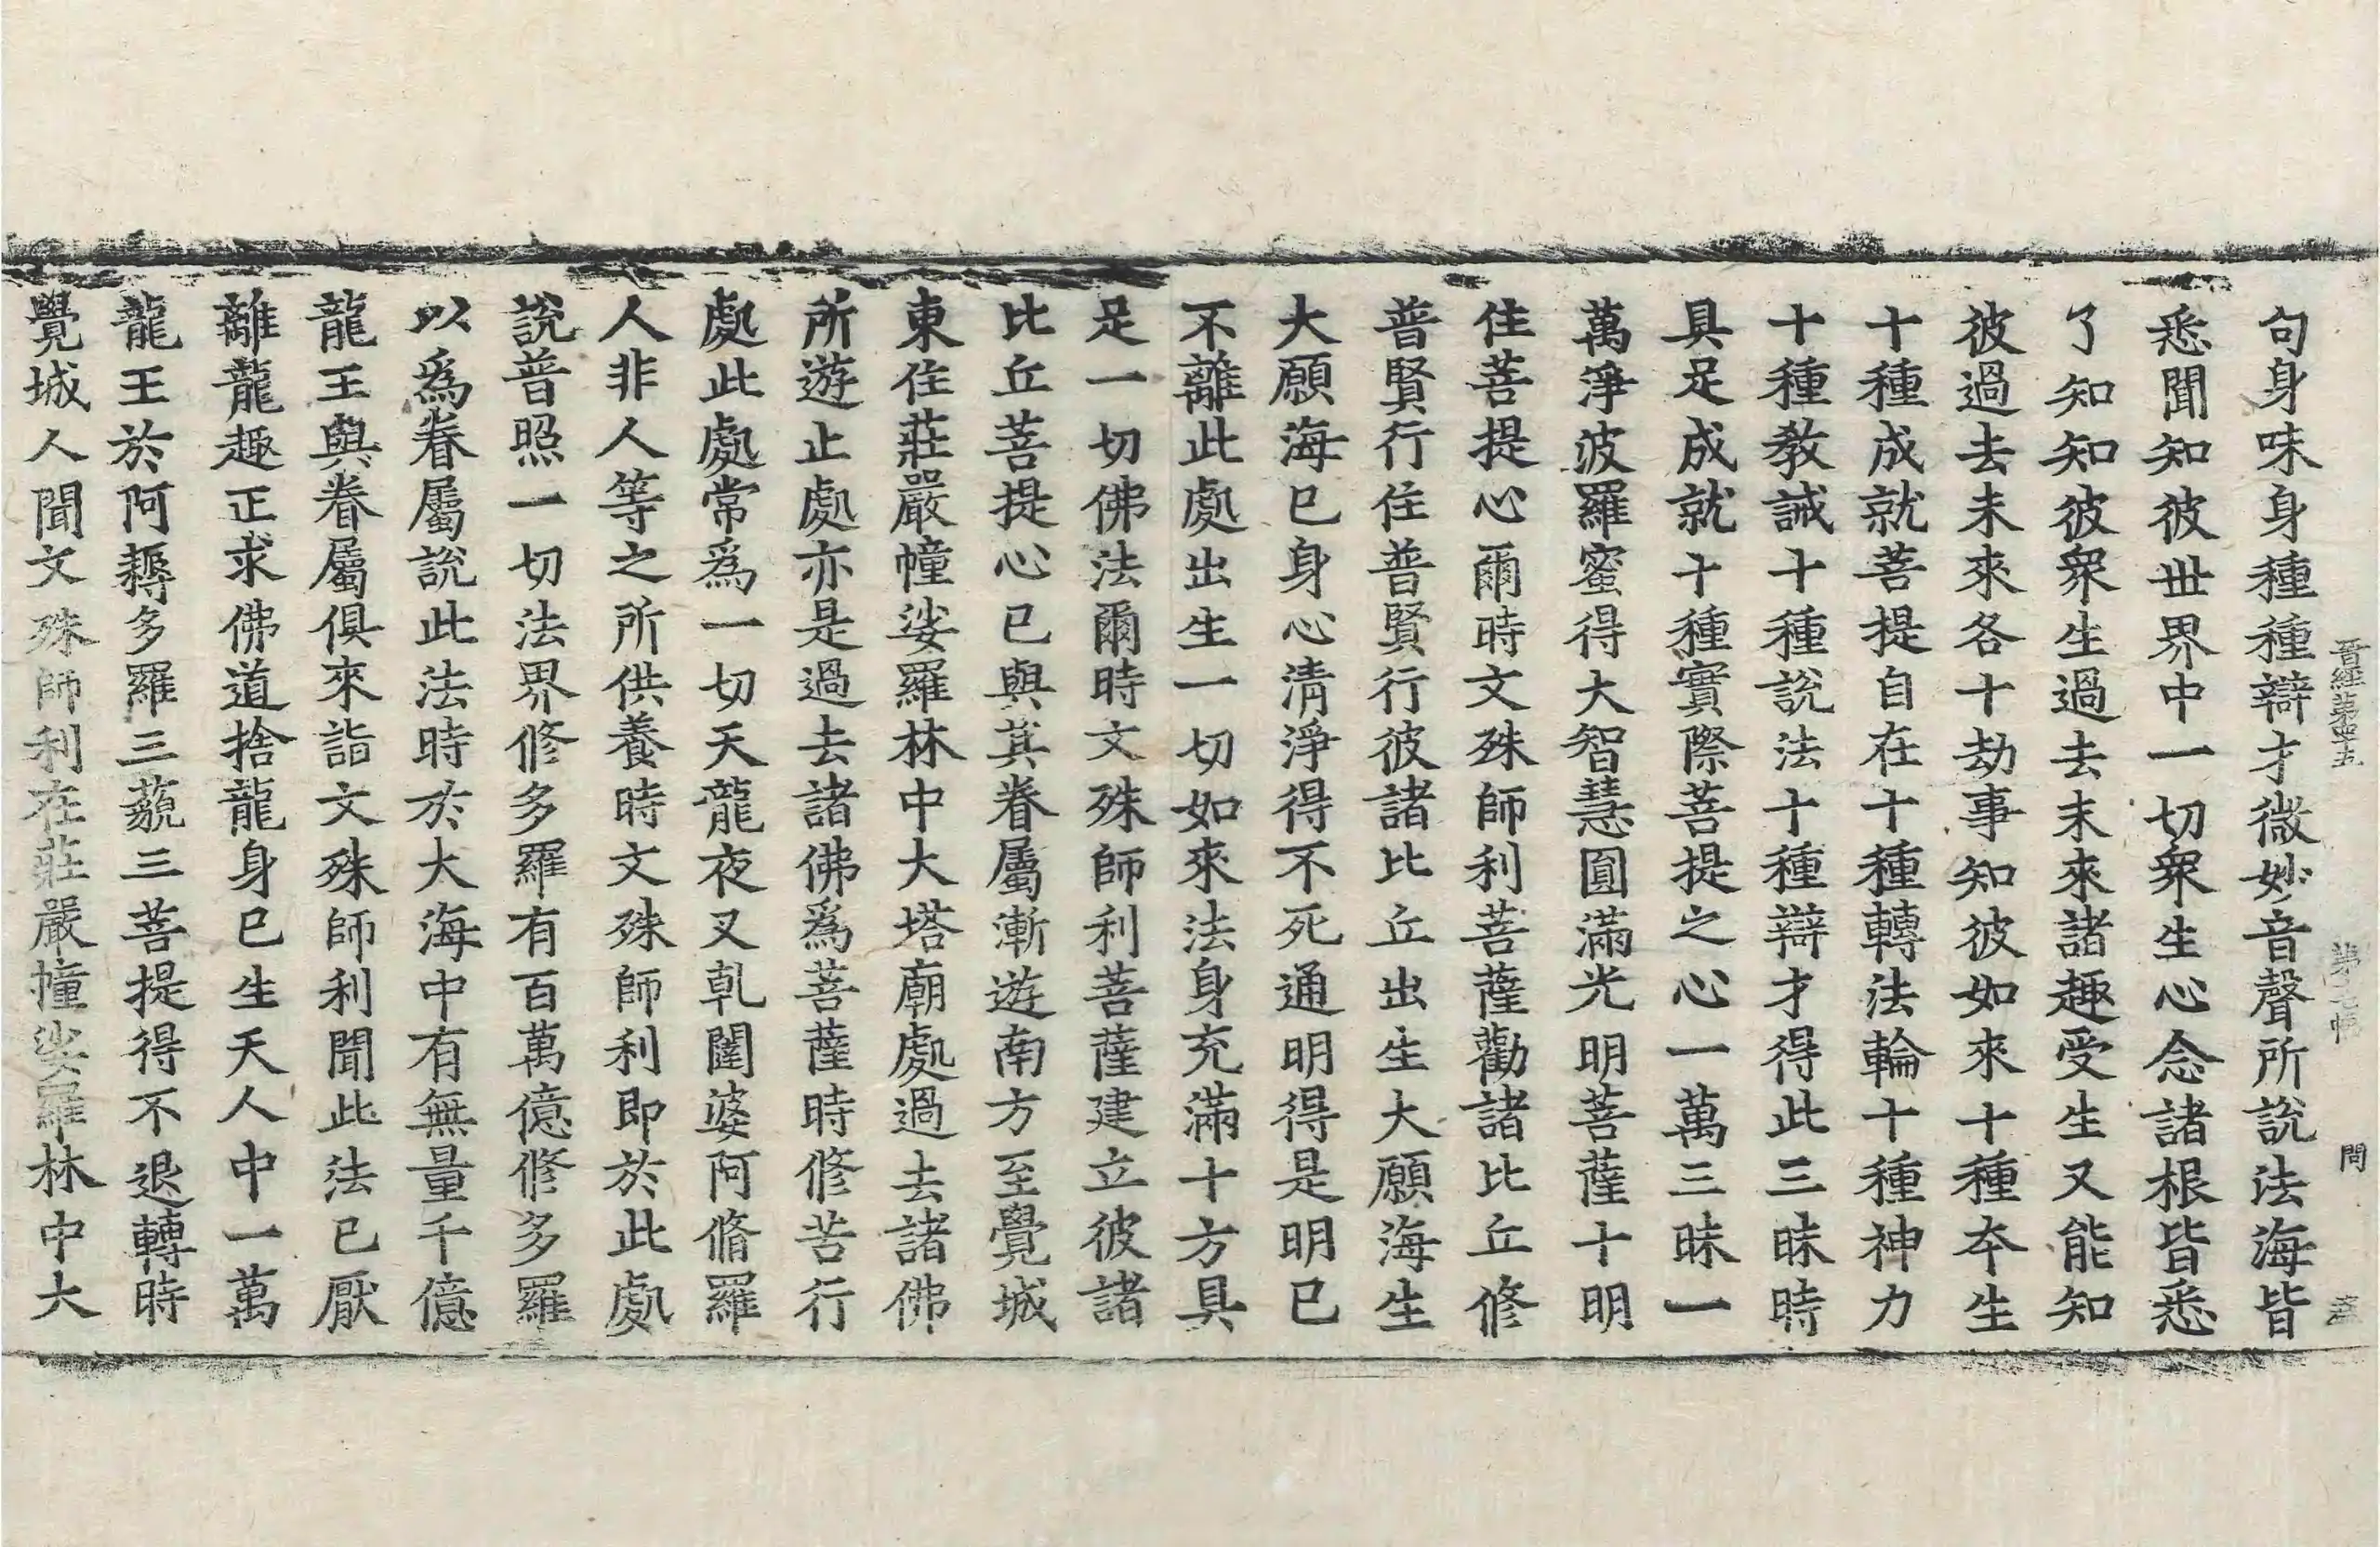 晋經第四十五 第七幅 問
句身味身種種辯才微妙音聲所說法海皆
悉聞知彼世界中一切衆生心念諸根皆悉
了知知彼衆生過去末來諸趣受生又能知
彼過去未來各十劫事知彼如來十種本生
十種成就菩提自在十種轉法輪十種神力
十種教誡十種說法十種辯才得此三昧時
具足成就十種實際菩提之心一萬三昧一
萬淨波羅蜜得大智慧圓滿光明菩薩十明
住菩提心爾時文殊師利菩薩勸諸比丘修
普賢行住普賢行彼諸比丘出生大願海生
大願海已身心清淨得不死通明得是明已
不離此處出生一切如來法身充滿十方具
足一切佛法爾時文殊師利菩薩建立彼諸
比丘菩提心已與其眷屬漸遊南方至覺城
東住莊嚴幢娑羅林中大塔廟處過去諸佛
所遊止處亦是過去諸佛爲菩薩時修苦行
處此處常爲一切天龍夜叉乹闥婆阿脩羅
人非人等之所供養時文殊師利即於此處
說普照一切法界修多羅有百萬億修多羅
以爲眷屬說此法時於大海中有無量千億
龍王與眷屬俱來詣文殊師利聞此法已厭
離龍趣正求佛道捨龍身已生天人中一萬
龍王於阿耨多羅三藐三菩提得不退轉時
覺城人聞文殊師利在莊嚴幢娑羅林中大